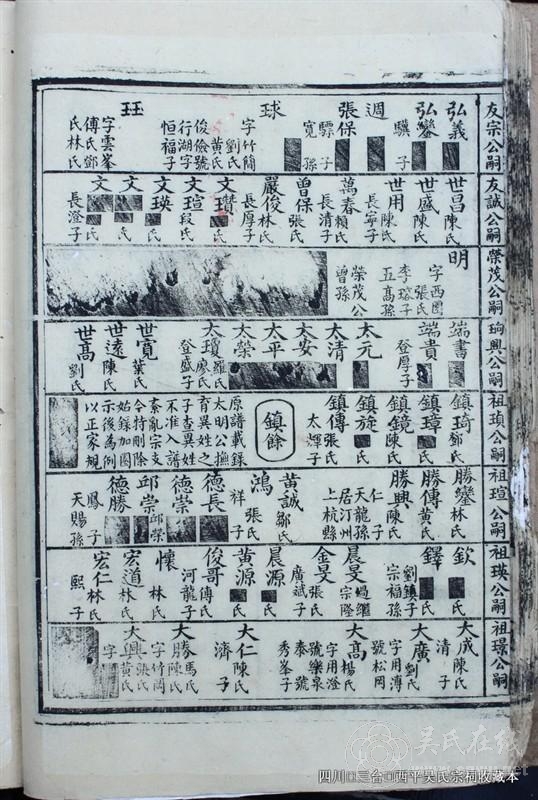 友宗公嗣
弘義
弘鑾
驥子
週
張保
驃子
寬孫
球
字竹簡
劉氏
黃氏
俊儉號
行湖字
恒福子
珏
字雲峯
傅氏鄧
氏林氏
友誠公嗣
世昌陳氏
世盛陳氏
世用陳氏
長寧子
萬春賴氏
長清子
曾保張氏
嚴俊林氏
長厚子
文瓚氏
文瑄段氏
文瑛氏
文氏
文氏
長澄子
榮茂公嗣
明
字西園
張氏
李瑢子
五高孫
榮茂公
曾孫
珣興公嗣
端書
端貴
登厚子
太元
太清
太安
太平
太榮
太瓊羅氏
廖氏
登盛子
世寬葉氏
世遠陳氏
世高劉氏
祖頊公嗣
鎮琦鄒氏
鎮璋氏
鎮鏡陳氏
鎮旋氏
鎮傳張氏
太輝子
鎮餘
原譜載錄
太明公撫
育異姓之
子查異姓
不准入譜
紊亂宗支
今特刪除
始錄加圈
示後為例
以正家規
祖瑄公嗣
勝鑾林氏
勝傳黃氏
勝興陳氏
仁子
天龍孫
居汀州
上杭縣
黃誠鄒氏
鴻張氏
祥子
德長
德崇
邱崇邱榮
德勝
鳳子
天賜孫
祖瑛公嗣
欽氏
鐸氏
劉鎮子
宗福孫
晨旻過繼
宗陞
金旻張氏
廣斌子
晨源氏
黃源氏
俊哥傅氏
河龍子
懷林氏
宏道林氏
宏仁林氏
熙子
祖璟公嗣
大成陳氏
清子
大廣劉氏
字用溥
號松岡
大高楊氏
字用澄
號樂泉
泰號
秀峯子
大仁陳氏
濟子
大勝馬氏
陳氏
字竹岡
大興張氏
黃氏
字
四川□三台□西平吴氏宗祠收藏本
吴氏在线